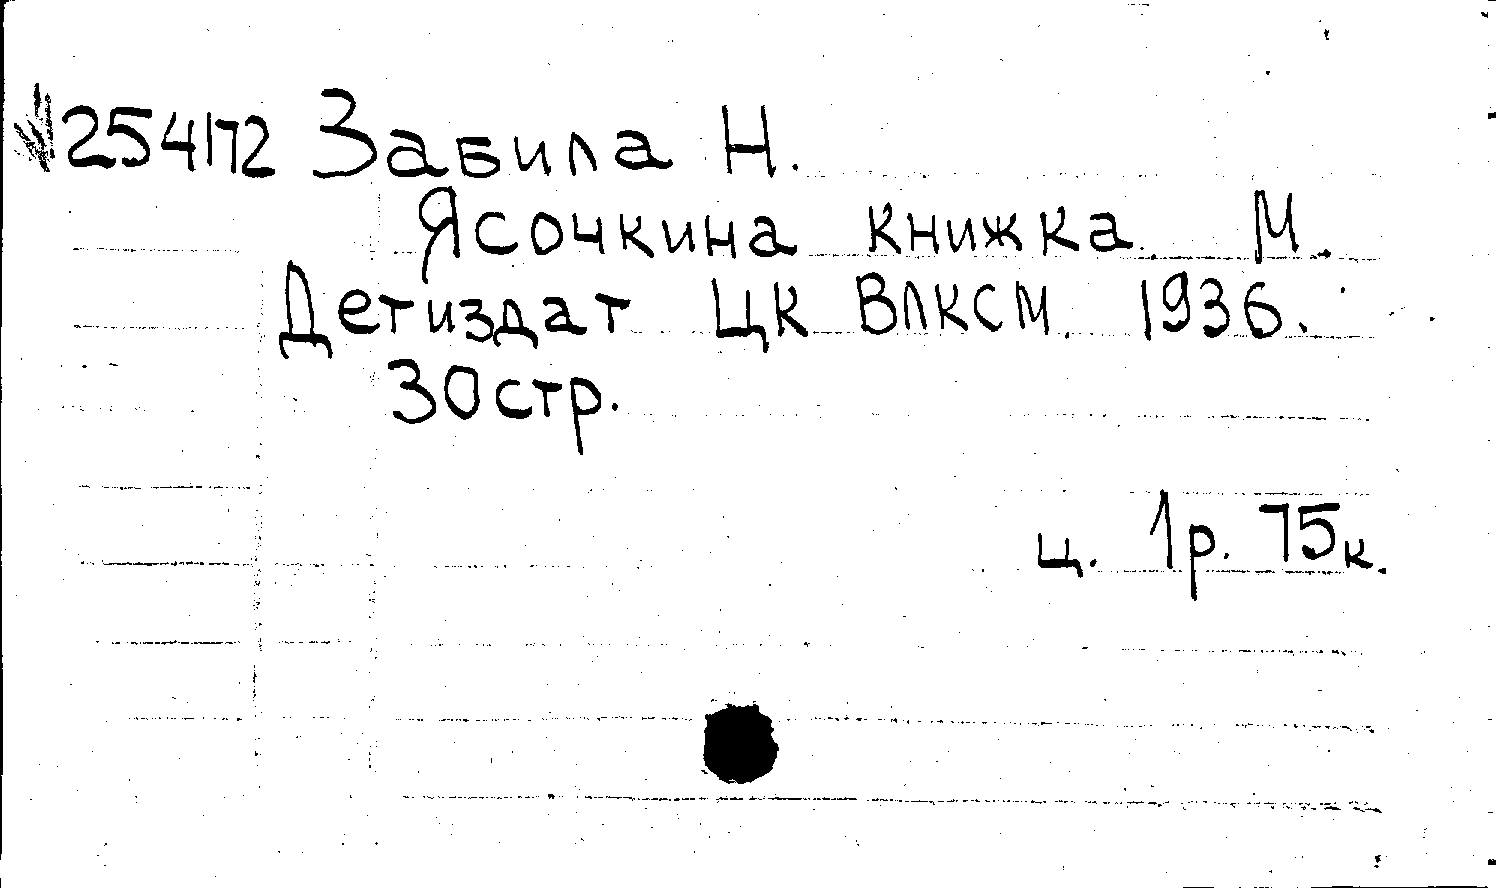 254172 Забила Н.
Ясочкина книжка М.
Детиздат ЦК ВЛКСМ. 1936.
30стр.
ц. 1р. 75к.